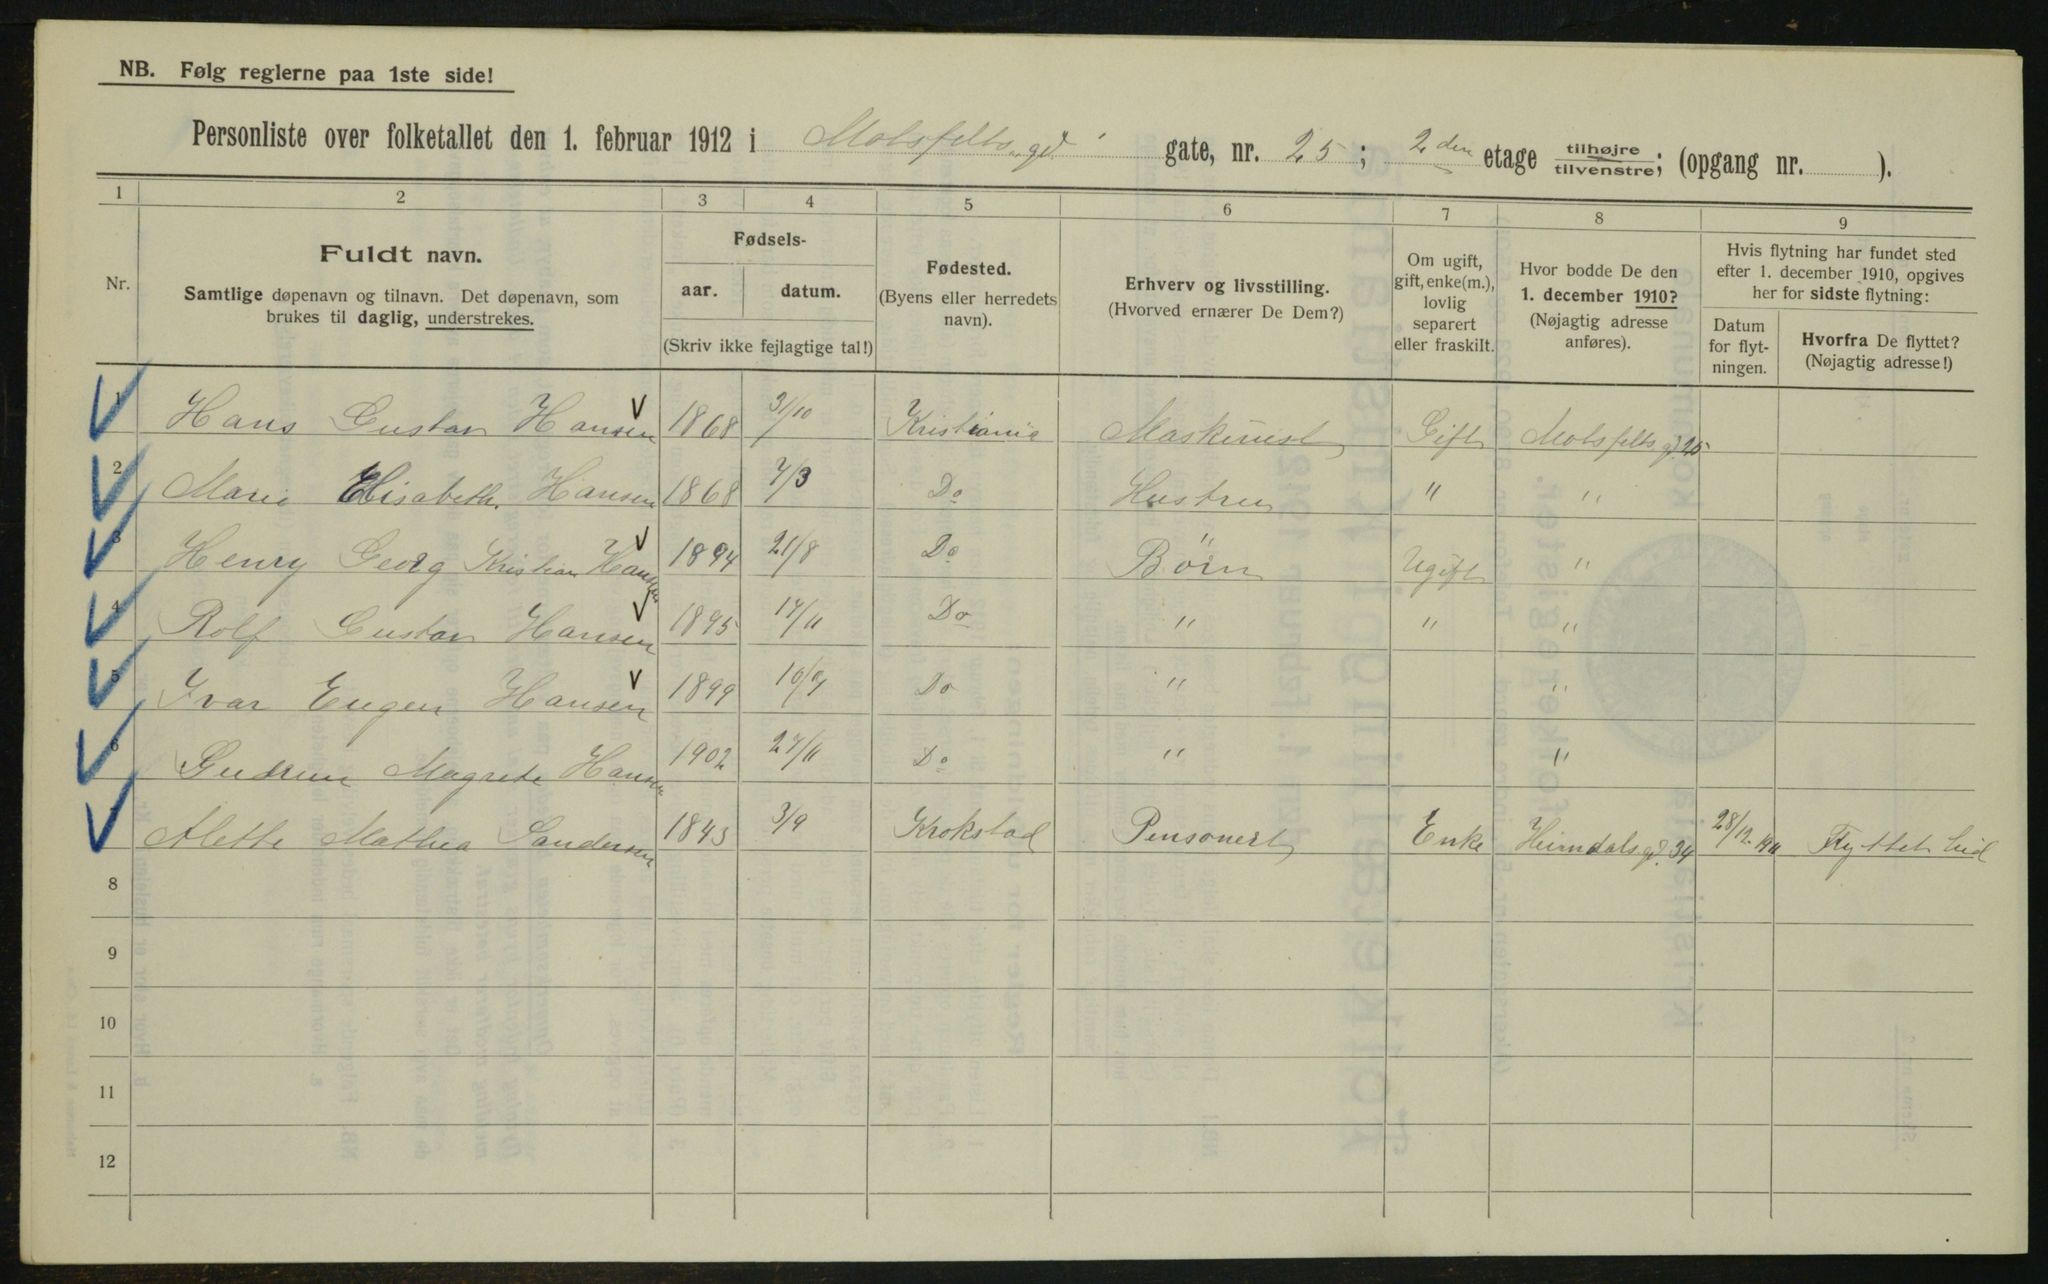 NB. Følg reglerne paa 1ste side!
Personliste over folketallet den 1. februar 1912 i Motsfelts gd gate, nr. 25; 2 den etage tilhøjre tilvenstre; (opgang nr. ).
1 2 3 4 5 6 7 8 9
Nr.
Fuldt navn.
Samtlige døpenavn og tilnavn. Det døpenavn, som
brukes til daglig, understrekes.
Fødsels-
aar. datum.
(Skriv ikke fejlagtige tal!)
Fødested.
(Byens eller herredets
navn).
Erhverv og livsstilling.
(Hvorved ernærer De Dem?)
Om ugift,
gift, enke(m.),
lovlig
separert
eller fraskilt.
Hvor bodde De den
1. december 1910?
(Nøjagtig adresse
anføres).
Hvis flytning har fundet sted
efter 1. december 1910, opgives
her for sidste flytning:
Datum
for flyt-
ningen.
Hvorfra De flyttet?
(Nøjagtig adresse!)
1 Hans Gustav Hansen 1868 31/10 Kristiania Maskinist Gift Motsfelts gd. 25
2 Marie Elisabeth Hansen 1868 7/3 Do Hustru " "
3 Henry Georg Kristian Hansen 1894 21/8 Do Børn Ugift "
4 Rolf Gustav Hansen 1895 17/11 Do " " "
5 Ivar Eugen Hansen 1899 10/7 Do " "
6 Gudrun Magrete Hansen 1902 27/11 Do " "
7 Alette Mathea Sandersen 1843 3/9 Krokstad Pensonert Enke Heimdals gd. 34 28/12 1911 Flyttet hid
8
9
10
11
12